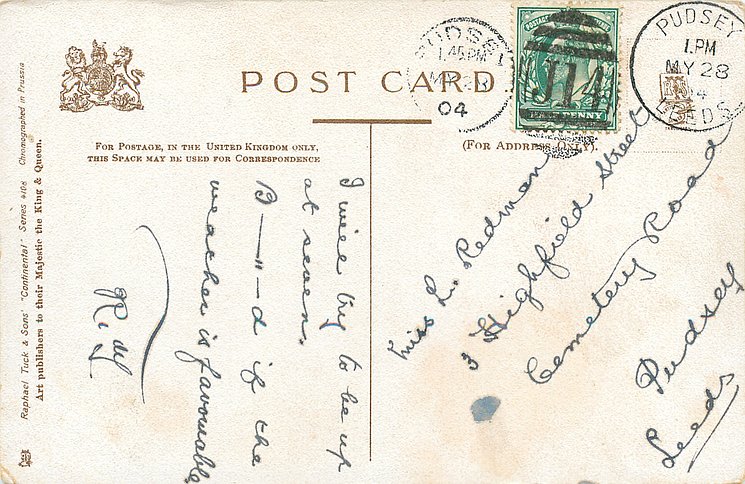 POST CARD
FOR POSTAGE, IN THE UNITED KINGDOM ONLY,
THIS SPACE MAY BE USED FOR CORRESPONDENCE
(FOR ADDRESS ONLY).
Raphael Tuck & Sons' "Continental" Series 4106 Chromographed in Prussia
Art publishers to their Majestic the King & Queen.
PUDSEY
1.45PM
MY 28
04
J14
HALF PENNY
PUDSEY
1.PM
MY 28
04
LEEDS
I will try to be up
at seven.
B—"—d if the
weather is favourable
Miss L. Redman
3 Highfield Street
Cemetery Road
Pudsey
Leeds